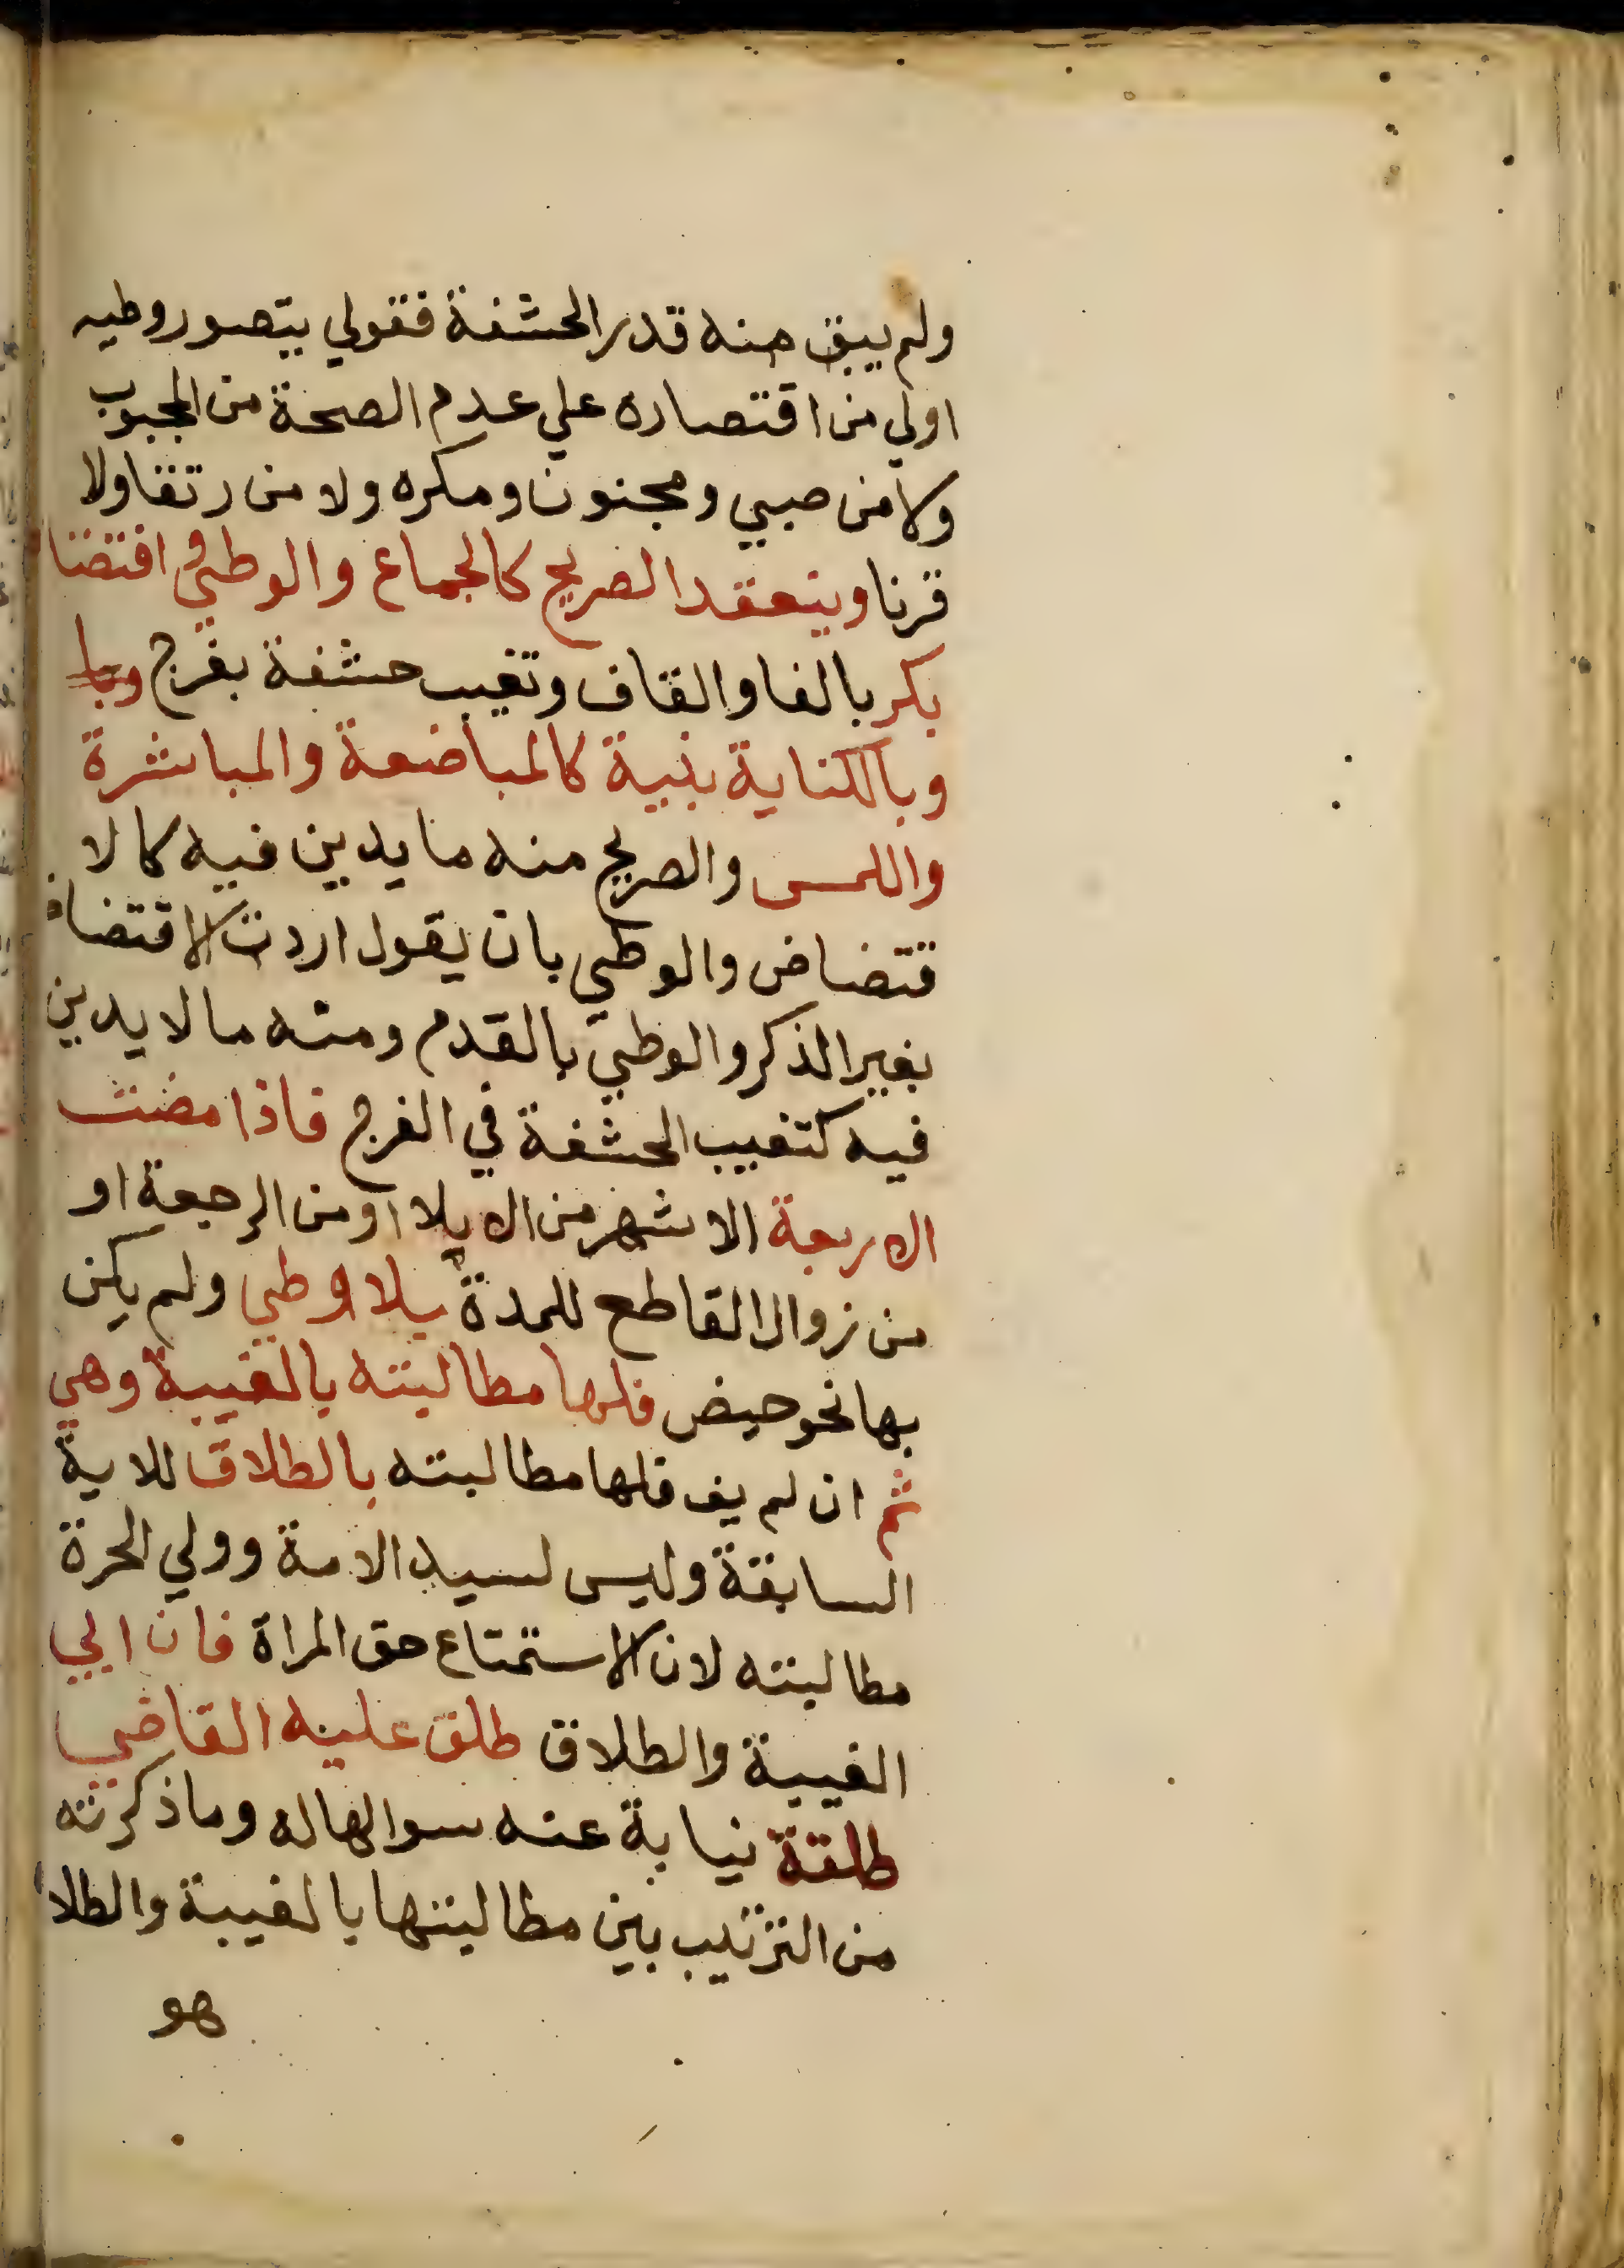 ولم يبق منه قدر الحشفة فقولي يتصور وطيه
اولي من اقتصاره علي عدم الصحة من المجبوب
ولا من صبي ومجنون ومكره ولا من رتقا ولا
قرنا وينعقد الصريح كالجماع والوطي وافتضا
بكر بالفا والقاف وتغيب حشفة بفرج وبا
وبالكناية بنية كالمباضعة والمباشرة
واللمس والصريح منه ما يدين فيه كالا
قتضاض والوطي بان يقول اردت الاقتضاض
بغير الذكر والوطي بالقدم ومنه ما لا يدين
فيه كتغيب الحشفة في الفرج فاذا مضت
الاربعة الاشهر من الايلا او من الرجعة او
من زوال القاطع للمدة بلا وطي ولم يكن
بها نحو حيض فلها مطالبته بالفيية وهي
ثم ان لم يف فلها مطالبته بالطلاق للاية
السابقة وليس لسيد الامة وولي الحرة
مطالبته لان الاستمتاع حق المراة فان ابي
الفيية والطلاق طلق عليه القاضي
طلقة نيابة عنه سوالها له وما ذكرته
من الترتيب بين مطالبتها بالفيية والطلا
هو